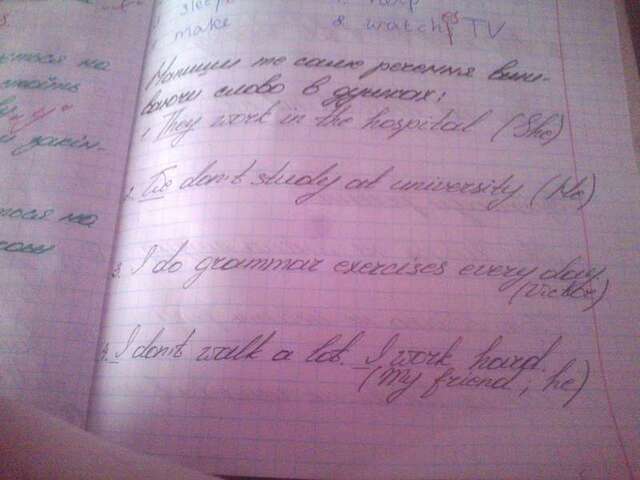 sleep
help
make 8 watches TV
Напиши те саме речення вжи-
ваючи слово в дужках:
1. They work in the hospital (She)
2. We don't study at university (He)
3. I do grammar exercises every day.
(Victor)
4. I don't walk a lot. I work hard.
(My friend, he)
ться на